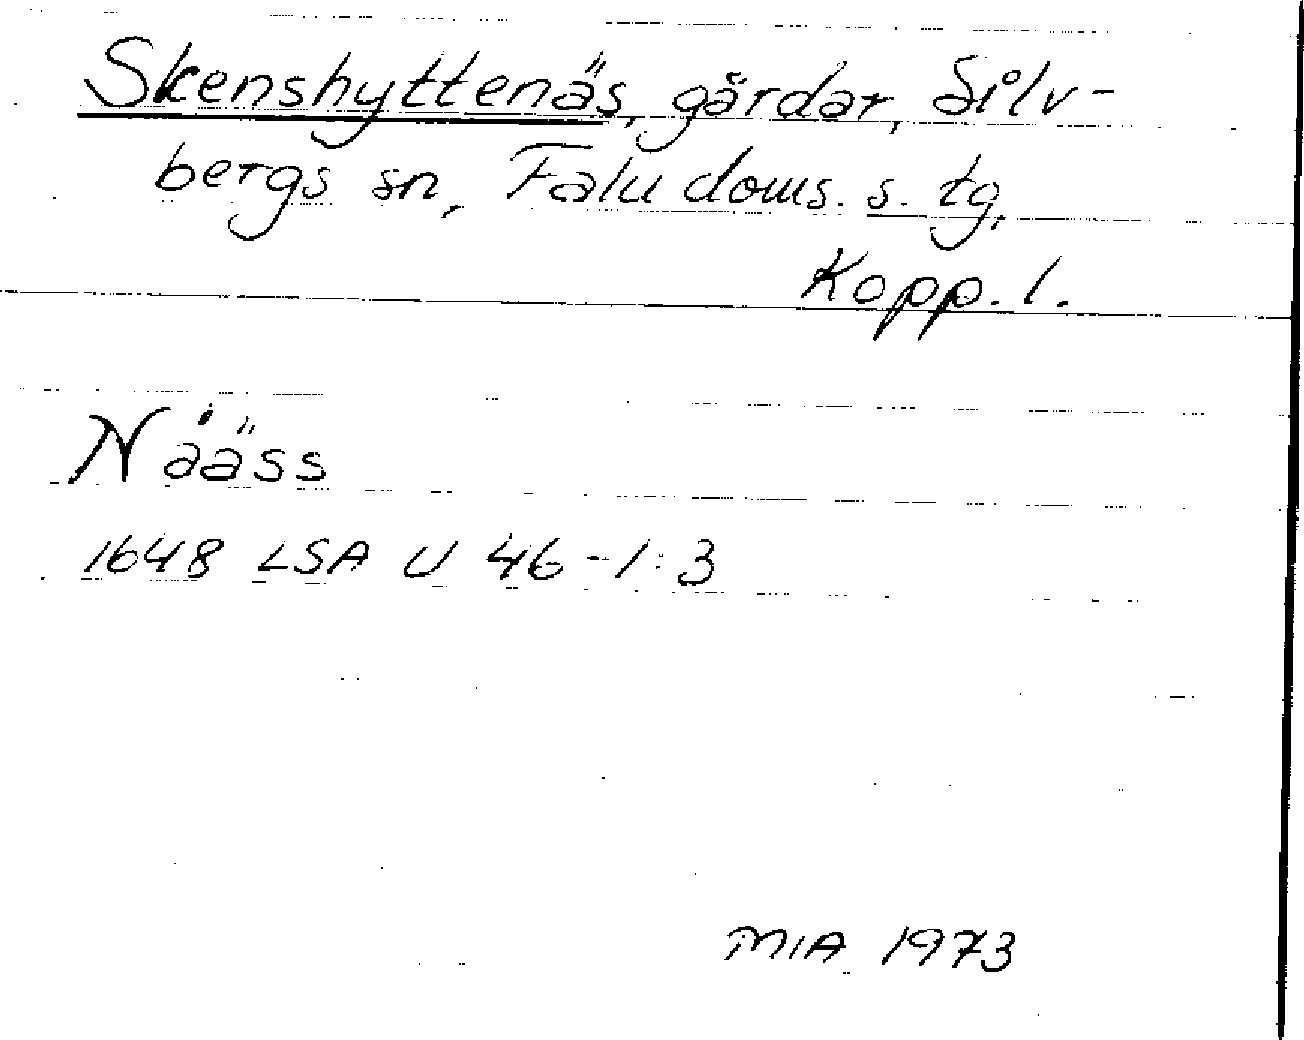 Skenshyttenäs, gårdar, Silv-
bergs sn, Falu doms. s. tg,
Kopp. l.
Nåäss
1648 LSA U 46-1:3
MIA 1973